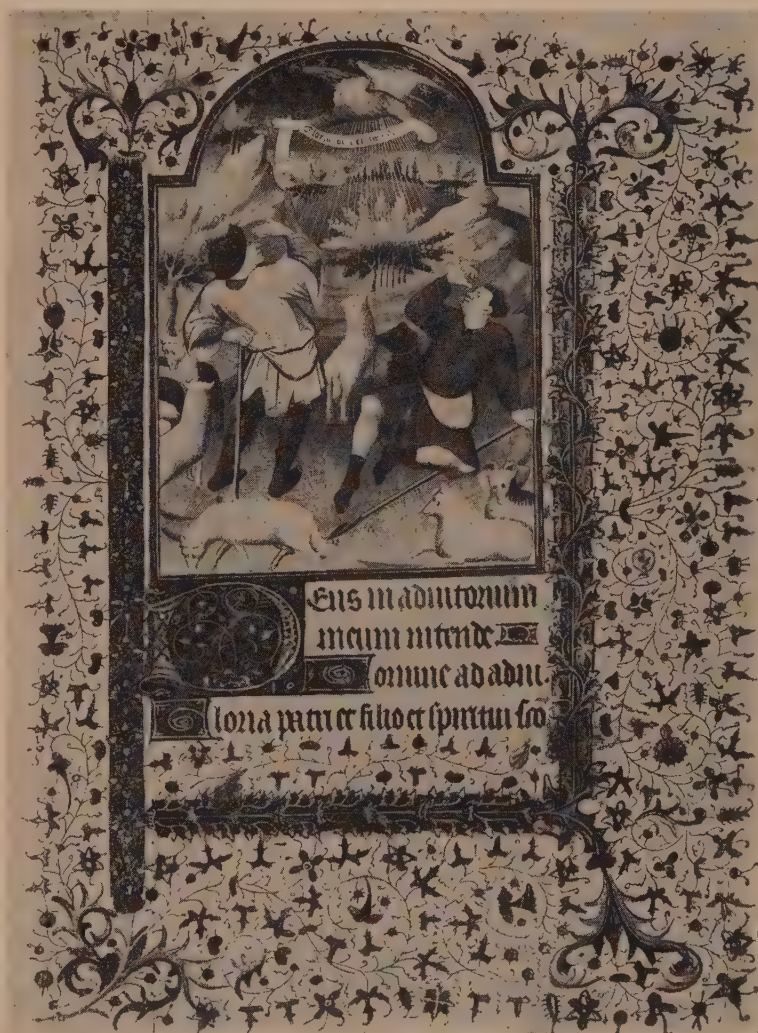 Deus in adiutorium
meum intende
Domine ad adiu
Gloria patri et filio et spiritui sco